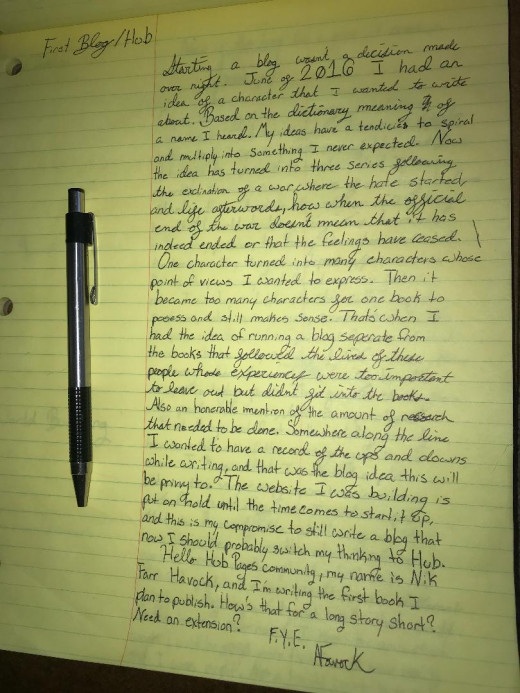 First Blog/Hub
Starting a blog wasn't a decision made
over night. June of 2016 I had an
idea of a character that I wanted to write
about. Based on the dictionary meaning of
a name I heard. My ideas have a tendicies to spiral
and multiply into something I never expected. Now
the idea has turned into three series following
the exclination of a war, where the hate started,
and life afterwords, how when the official
end of the war doesn't mean that it has
indeed ended or that the feelings have ceased.
One character turned into many characters whose
point of views I wanted to express. Then it
became too many characters for one book to
posess and still makes sense. That's when I
had the idea of running a blog seperate from
the books that followed the lives of these
people whose experiences were too important
to leave out but didn't fit into the books.
Also an honorable imention of the amount of research
that needed to be done. Somewhere along the line
I wanted to have a record of the ups and downs
while writing, and that was the blog idea this will
be privy to. The website I was building is
put on hold until the time comes to start it up,
and this is my compromise to still write a blog that
now I should probably switch my thinking to Hub.
Hello Hub Pages community, my name is Nik
Farr Havock, and I'm writing the first book I
plan to publish. How's that for a long story short?
Need an extension?
F.Y.E.
Havock